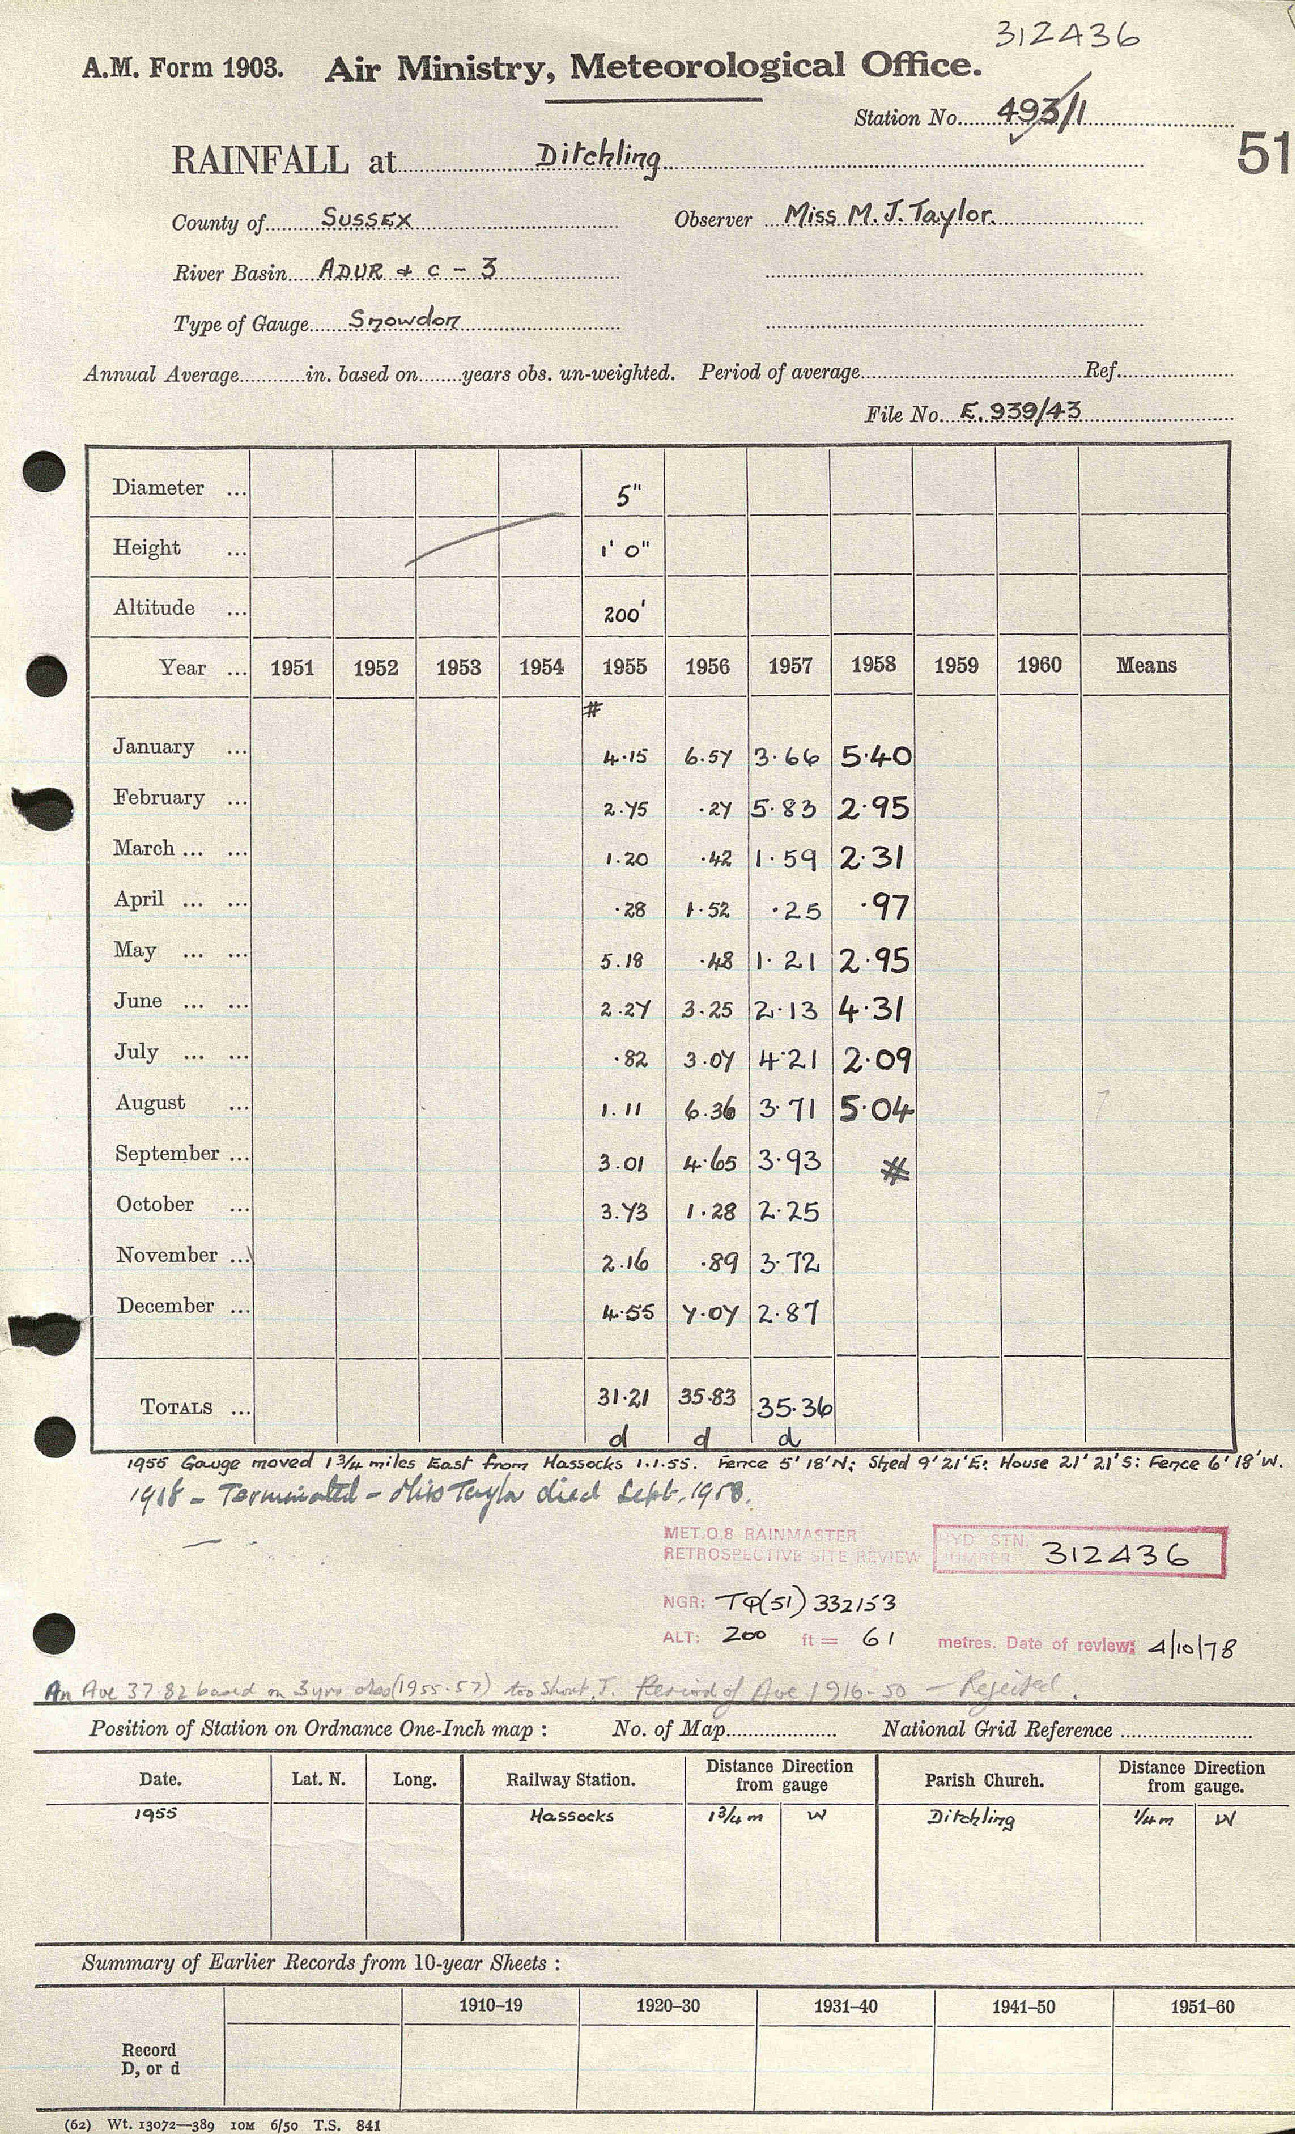 312436
A.M. Form 1903. Air Ministry, Meteorological Office.
Station No. 493/1
51
RAINFALL at Ditchling
County of SUSSEX Observer Miss M. J. Taylor.
River Basin ADUR & C - 3
Type of Gauge Snowdon
Annual Average in. based on years obs. un-weighted. Period of average Ref.
File No. E. 939/43
Diameter ... 5"
Height ... 1' 0"
Altitude ... 200'
Year ... 1951 1952 1953 1954 1955 1956 1957 1958 1959 1960 Means
#
January ... 4.15 6.57 3.66 5.40
February ... 2.75 .27 5.83 2.95
March ... ... 1.20 .42 1.59 2.31
April ... ... .28 1.52 .25 .97
May ... ... 5.18 .48 1.21 2.95
June ... ... 2.27 3.25 2.13 4.31
July ... ... .82 3.07 4.21 2.09
August ... 1.11 6.36 3.71 5.04
September ... 3.01 4.65 3.93 #
October ... 3.73 1.28 2.25
November ... 2.16 .89 3.72
December ... 4.55 7.07 2.87
TOTALS ... 31.21 35.83 35.36
d d d
1955 Gauge moved 1 3/4 miles East from Hassocks 1.1.55. Fence 5' 18'N; Shed 9' 21'E: House 21' 21'S: Fence 6' 18'W.
1958 - Terminated - Miss Taylor died Sept. 1958.
MET.O.8 RAINMASTER
RETROSPECTIVE SITE REVIEW HYD STN. NUMBER 312436
NGR: TQ(51) 332153
ALT: 200 ft = 61 metres. Date of review: 4/10/78
An Ave 37.82 based on 3 yrs obs (1955-57) too short. Period of Ave 1916-50 - Rejected.
Position of Station on Ordnance One-Inch map : No. of Map National Grid Reference
Date. Lat. N. Long. Railway Station. Distance from gauge Direction Parish Church. Distance from gauge. Direction
1955 Hassocks 1 3/4 m W Ditchling 1/4 m W
Summary of Earlier Records from 10-year Sheets :
1910–19 1920–30 1931–40 1941–50 1951–60
Record
D, or d
(62) Wt. 13072—389 10M 6/50 T.S. 841